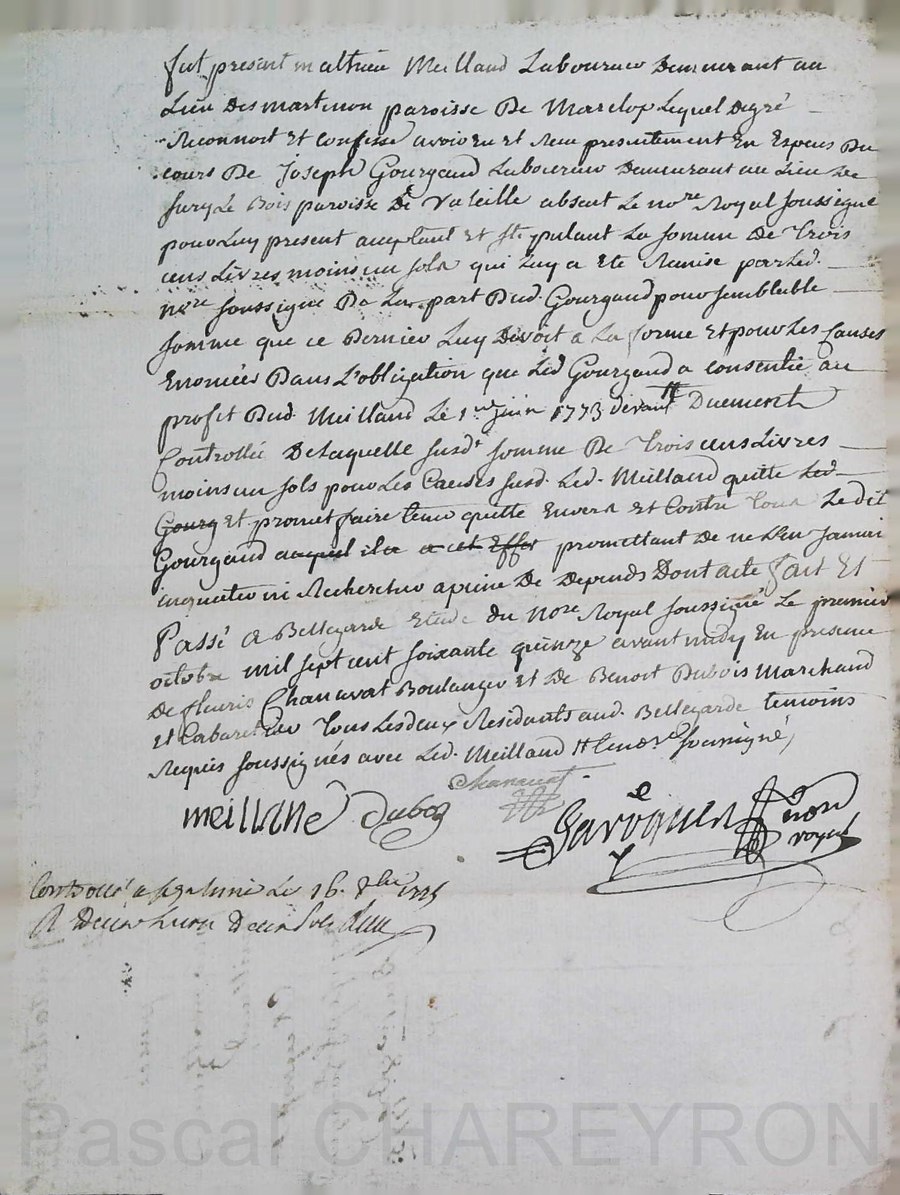 fut présent mathieu Meilland Laboureur Demeurant au
Lieu Des martinon paroisse De Marclop Lequel Degré
Reconnoit Et confesse avoir eu et Reçu presentement En Especes Du
cours De Joseph Gourgaud Laboureur Demeurant au Lieu De
Sury Le Bois paroisse De Valeille absent Le nore Royal soussigné
pour Luy present acceptant Et stipulant La somme De Trois
cens Livres moins un sols qui Luy a Eté Remise par Led.
nore soussigné De La part Dud. Gourgaud pour semblable
somme que ce Dernier Luy Devoit a La forme Et pour Les Causes
Enoncées Dans L'obligation que Led Gourgaud a consentie au
profit Dud. Meilland Le 1er juin 1773 devant Me Duement
Controllée De Laquelle susdte somme De Trois cens Livres
moins un sols pour Les Causes susd. Led. Meilland quitte Led
Gourg Et promet faire tenir quitte Envers Et Contre Tous Le dit
Gourgaud auquel il a a cet Effet promettant De ne L'en Jamais
inquieter ni Rechercher a peine De Depends Dont acte fait Et
Passé a Bellegarde Etude du Nore Royal soussigné Le premier
octobre mil sept cent soixante quinze avant midy En presence
De fleuris Chanavat Boulanger Et De Benoit Dubois Marchand
Et Cabaretier Tous Les deux Residants aud. Bellegarde temoins
Requis soussignés avec Led. Meilland Et Led. nore soussigné,
Chanavat
meilland Dubois
nore
royal
Controllé a le 16. 8bre 1775